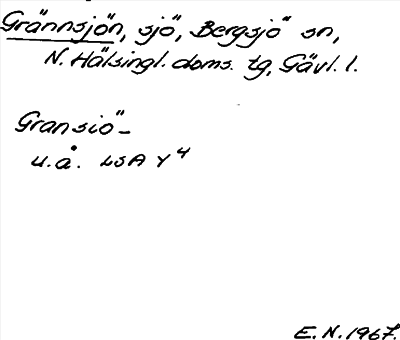 Grännsjön, sjö, Bergsjö sn,
N. Hälsingl. doms. tg, Gävl. l.
Gransiö-
u.å. LSA Y4
E.N. 1967.